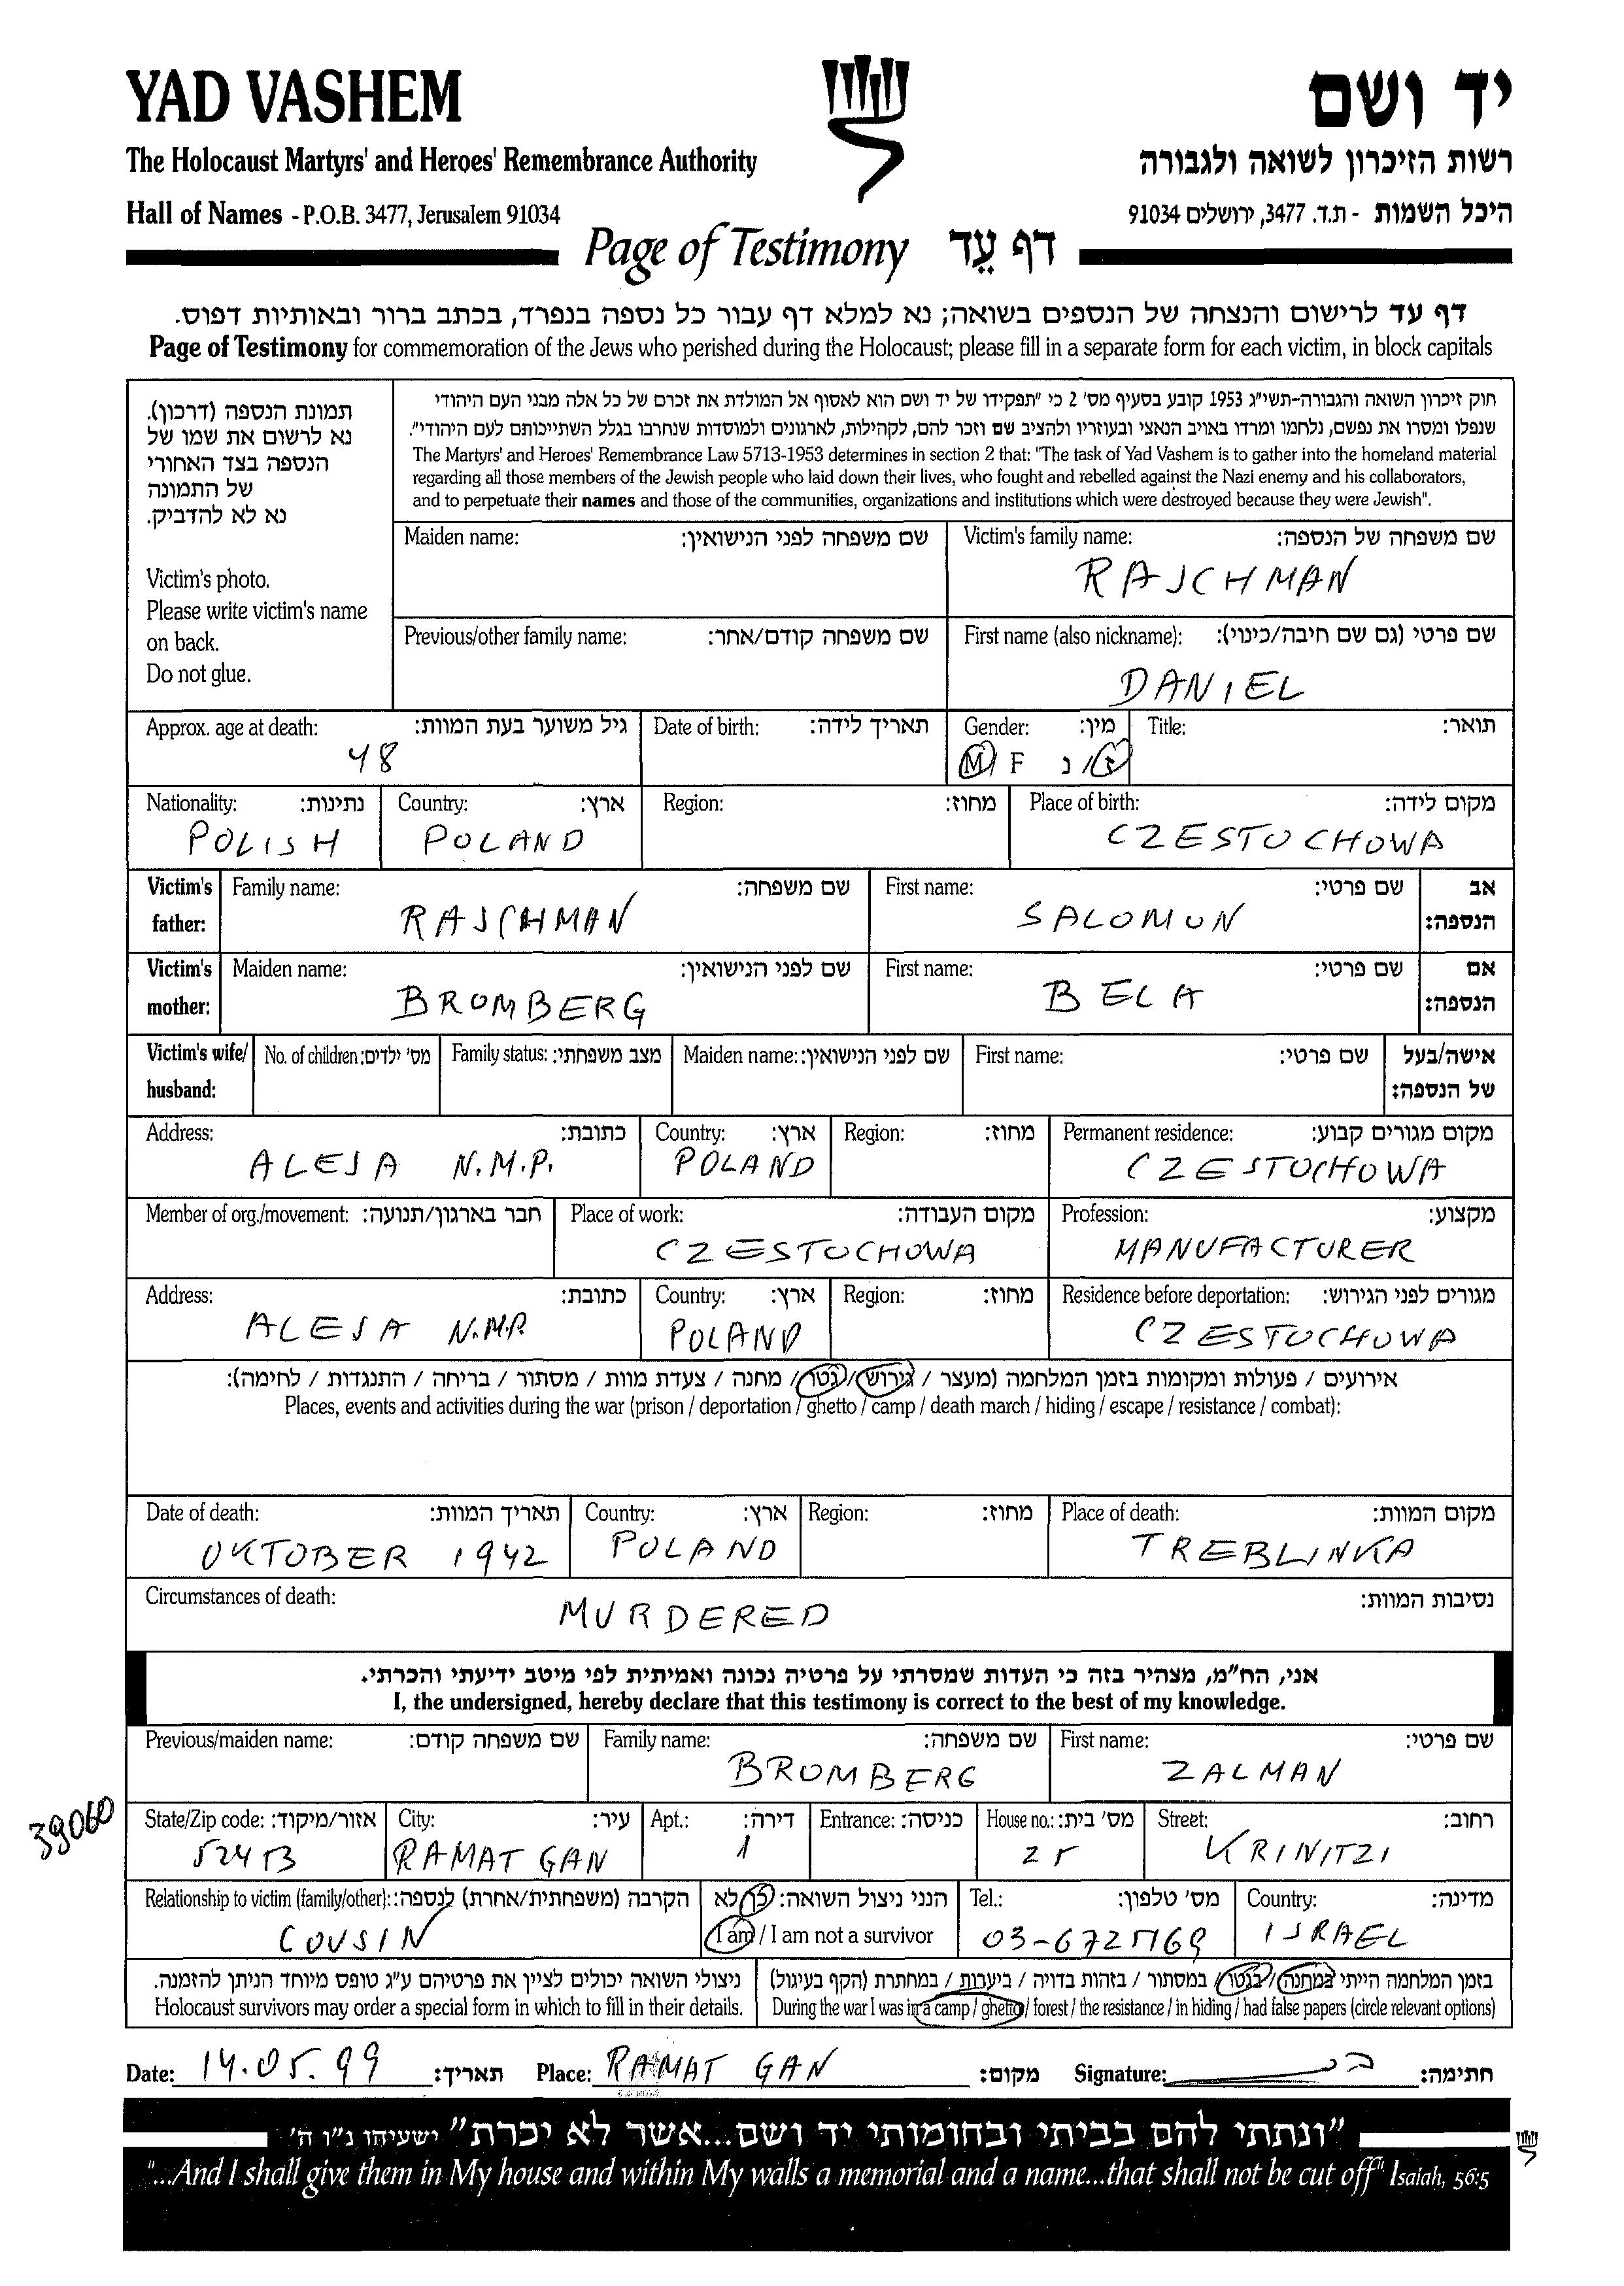 YAD VASHEM
יד ושם
The Holocaust Martyrs' and Heroes' Remembrance Authority
רשות הזיכרון לשואה ולגבורה
Hall of Names - P.O.B. 3477, Jerusalem 91034
היכל השמות - ת.ד. 3477, ירושלים 91034
Page of Testimony דף עֵד
דף עד לרישום והנצחה של הנספים בשואה; נא למלא דף עבור כל נספה בנפרד, בכתב ברור ובאותיות דפוס.
Page of Testimony for commemoration of the Jews who perished during the Holocaust; please fill in a separate form for each victim, in block capitals
תמונת הנספה (דרכון).
נא לרשום את שמו של
הנספה בצד האחורי
של התמונה
נא לא להדביק.
Victim's photo.
Please write victim's name
on back.
Do not glue.
חוק זיכרון השואה והגבורה-תשי"ג 1953 קובע בסעיף מס' 2 כי "תפקידו של יד ושם הוא לאסוף אל המולדת את זכרם של כל אלה מבני העם היהודי
שנפלו ומסרו את נפשם, נלחמו ומרדו באויב הנאצי ובעוזריו ולהציב שם וזכר להם, לקהילות, לארגונים ולמוסדות שנחרבו בגלל השתייכותם לעם היהודי".
The Martyrs' and Heroes' Remembrance Law 5713-1953 determines in section 2 that: "The task of Yad Vashem is to gather into the homeland material
regarding all those members of the Jewish people who laid down their lives, who fought and rebelled against the Nazi enemy and his collaborators,
and to perpetuate their names and those of the communities, organizations and institutions which were destroyed because they were Jewish".
Maiden name: שם משפחה לפני הנישואין:
Victim's family name: שם משפחה של הנספה:
RAJCHMAN
Previous/other family name: שם משפחה קודם/אחר:
First name (also nickname): שם פרטי (גם שם חיבה/כינוי):
DANIEL
Approx. age at death: גיל משוער בעת המוות:
48
Date of birth: תאריך לידה:
Gender: מין:
M/F ז/נ
Title: תואר:
Nationality: נתינות:
POLISH
Country: ארץ:
POLAND
Region: מחוז:
Place of birth: מקום לידה:
CZESTOCHOWA
Victim's father: Family name: שם משפחה:
RAJCHMAN
First name: שם פרטי: אב הנספה:
SALOMON
Victim's mother: Maiden name: שם לפני הנישואין:
BROMBERG
First name: שם פרטי: אם הנספה:
BELA
Victim's wife/ husband: No. of children: מס' ילדים: Family status: מצב משפחתי: Maiden name: שם לפני הנישואין: First name: שם פרטי: אישה/בעל של הנספה:
Address: כתובת:
ALEJA N.M.P.
Country: ארץ:
POLAND
Region: מחוז:
Permanent residence: מקום מגורים קבוע:
CZESTOCHOWA
Member of org./movement: חבר בארגון/תנועה:
Place of work: מקום העבודה:
CZESTOCHOWA
Profession: מקצוע:
MANUFACTURER
Address: כתובת:
ALEJA N.M.P.
Country: ארץ:
POLAND
Region: מחוז:
Residence before deportation: מגורים לפני הגירוש:
CZESTOCHOWA
אירועים / פעולות ומקומות בזמן המלחמה (מעצר / גירוש / גטו / מחנה / צעדת מוות / מסתור / בריחה / התנגדות / לחימה):
Places, events and activities during the war (prison / deportation / ghetto / camp / death march / hiding / escape / resistance / combat):
Date of death: תאריך המוות:
OKTOBER 1942
Country: ארץ:
POLAND
Region: מחוז:
Place of death: מקום המוות:
TREBLINKA
Circumstances of death: נסיבות המוות:
MURDERED
אני, הח"מ, מצהיר בזה כי העדות שמסרתי על פרטיה נכונה ואמיתית לפי מיטב ידיעתי והכרתי.
I, the undersigned, hereby declare that this testimony is correct to the best of my knowledge.
Previous/maiden name: שם משפחה קודם:
Family name: שם משפחה:
BROMBERG
First name: שם פרטי:
ZALMAN
39060
State/Zip code: אזור/מיקוד:
City: עיר:
RAMAT GAN
Apt.: דירה:
1
Entrance: כניסה:
House no.: מס' בית:
25
Street: רחוב:
KRINITZI
Relationship to victim (family/other): הקרבה (משפחתית/אחרת) לנספה:
COUSIN
הנני ניצול השואה: כן/לא
I am / I am not a survivor
Tel.: מס' טלפון:
Country: מדינה:
ISRAEL
ניצולי השואה יכולים לציין את פרטיהם ע"ג טופס מיוחד הניתן להזמנה.
Holocaust survivors may order a special form in which to fill in their details.
בזמן המלחמה הייתי במחנה / בגטו / במסתור / בזהות בדויה / ביערות / במחתרת (הקף בעיגול)
During the war I was in a camp / ghetto / forest / the resistance / in hiding / had false papers (circle relevant options)
Date: 14.05.99 תאריך: Place: RAMAT GAN מקום: Signature: חתימה:
"ונתתי להם בביתי ובחומותי יד ושם...אשר לא יכרת" ישעיהו נ"ו ה'
"...And I shall give them in My house and within My walls a memorial and a name...that shall not be cut off" Isaiah, 56:5